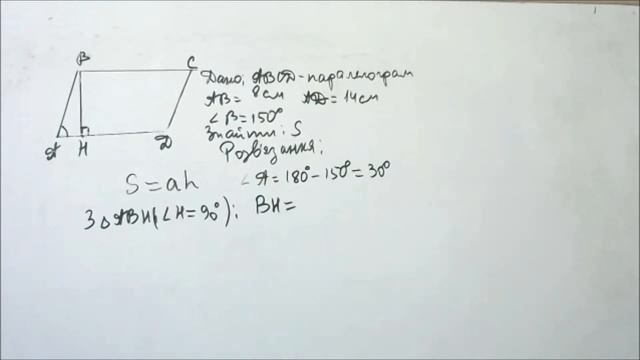 B C
A H D
Дано: ABCD - паралелограм
AB = 8 см AD = 14 см
∠B = 150°
Знайти: S
Розв'язання:
∠A = 180° - 150° = 30°
S = ah
З △ABH (∠H = 90°): BH =